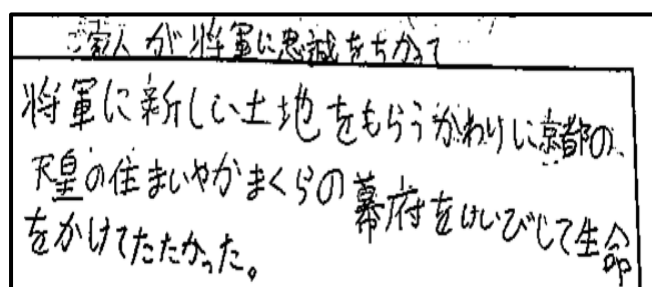 ご家人が将軍に忠誠をちかって
将軍に新しい土地をもらうかわりに京都の
天皇の住まいやかまくらの幕府をけいびして生命
をかけてたたかった。